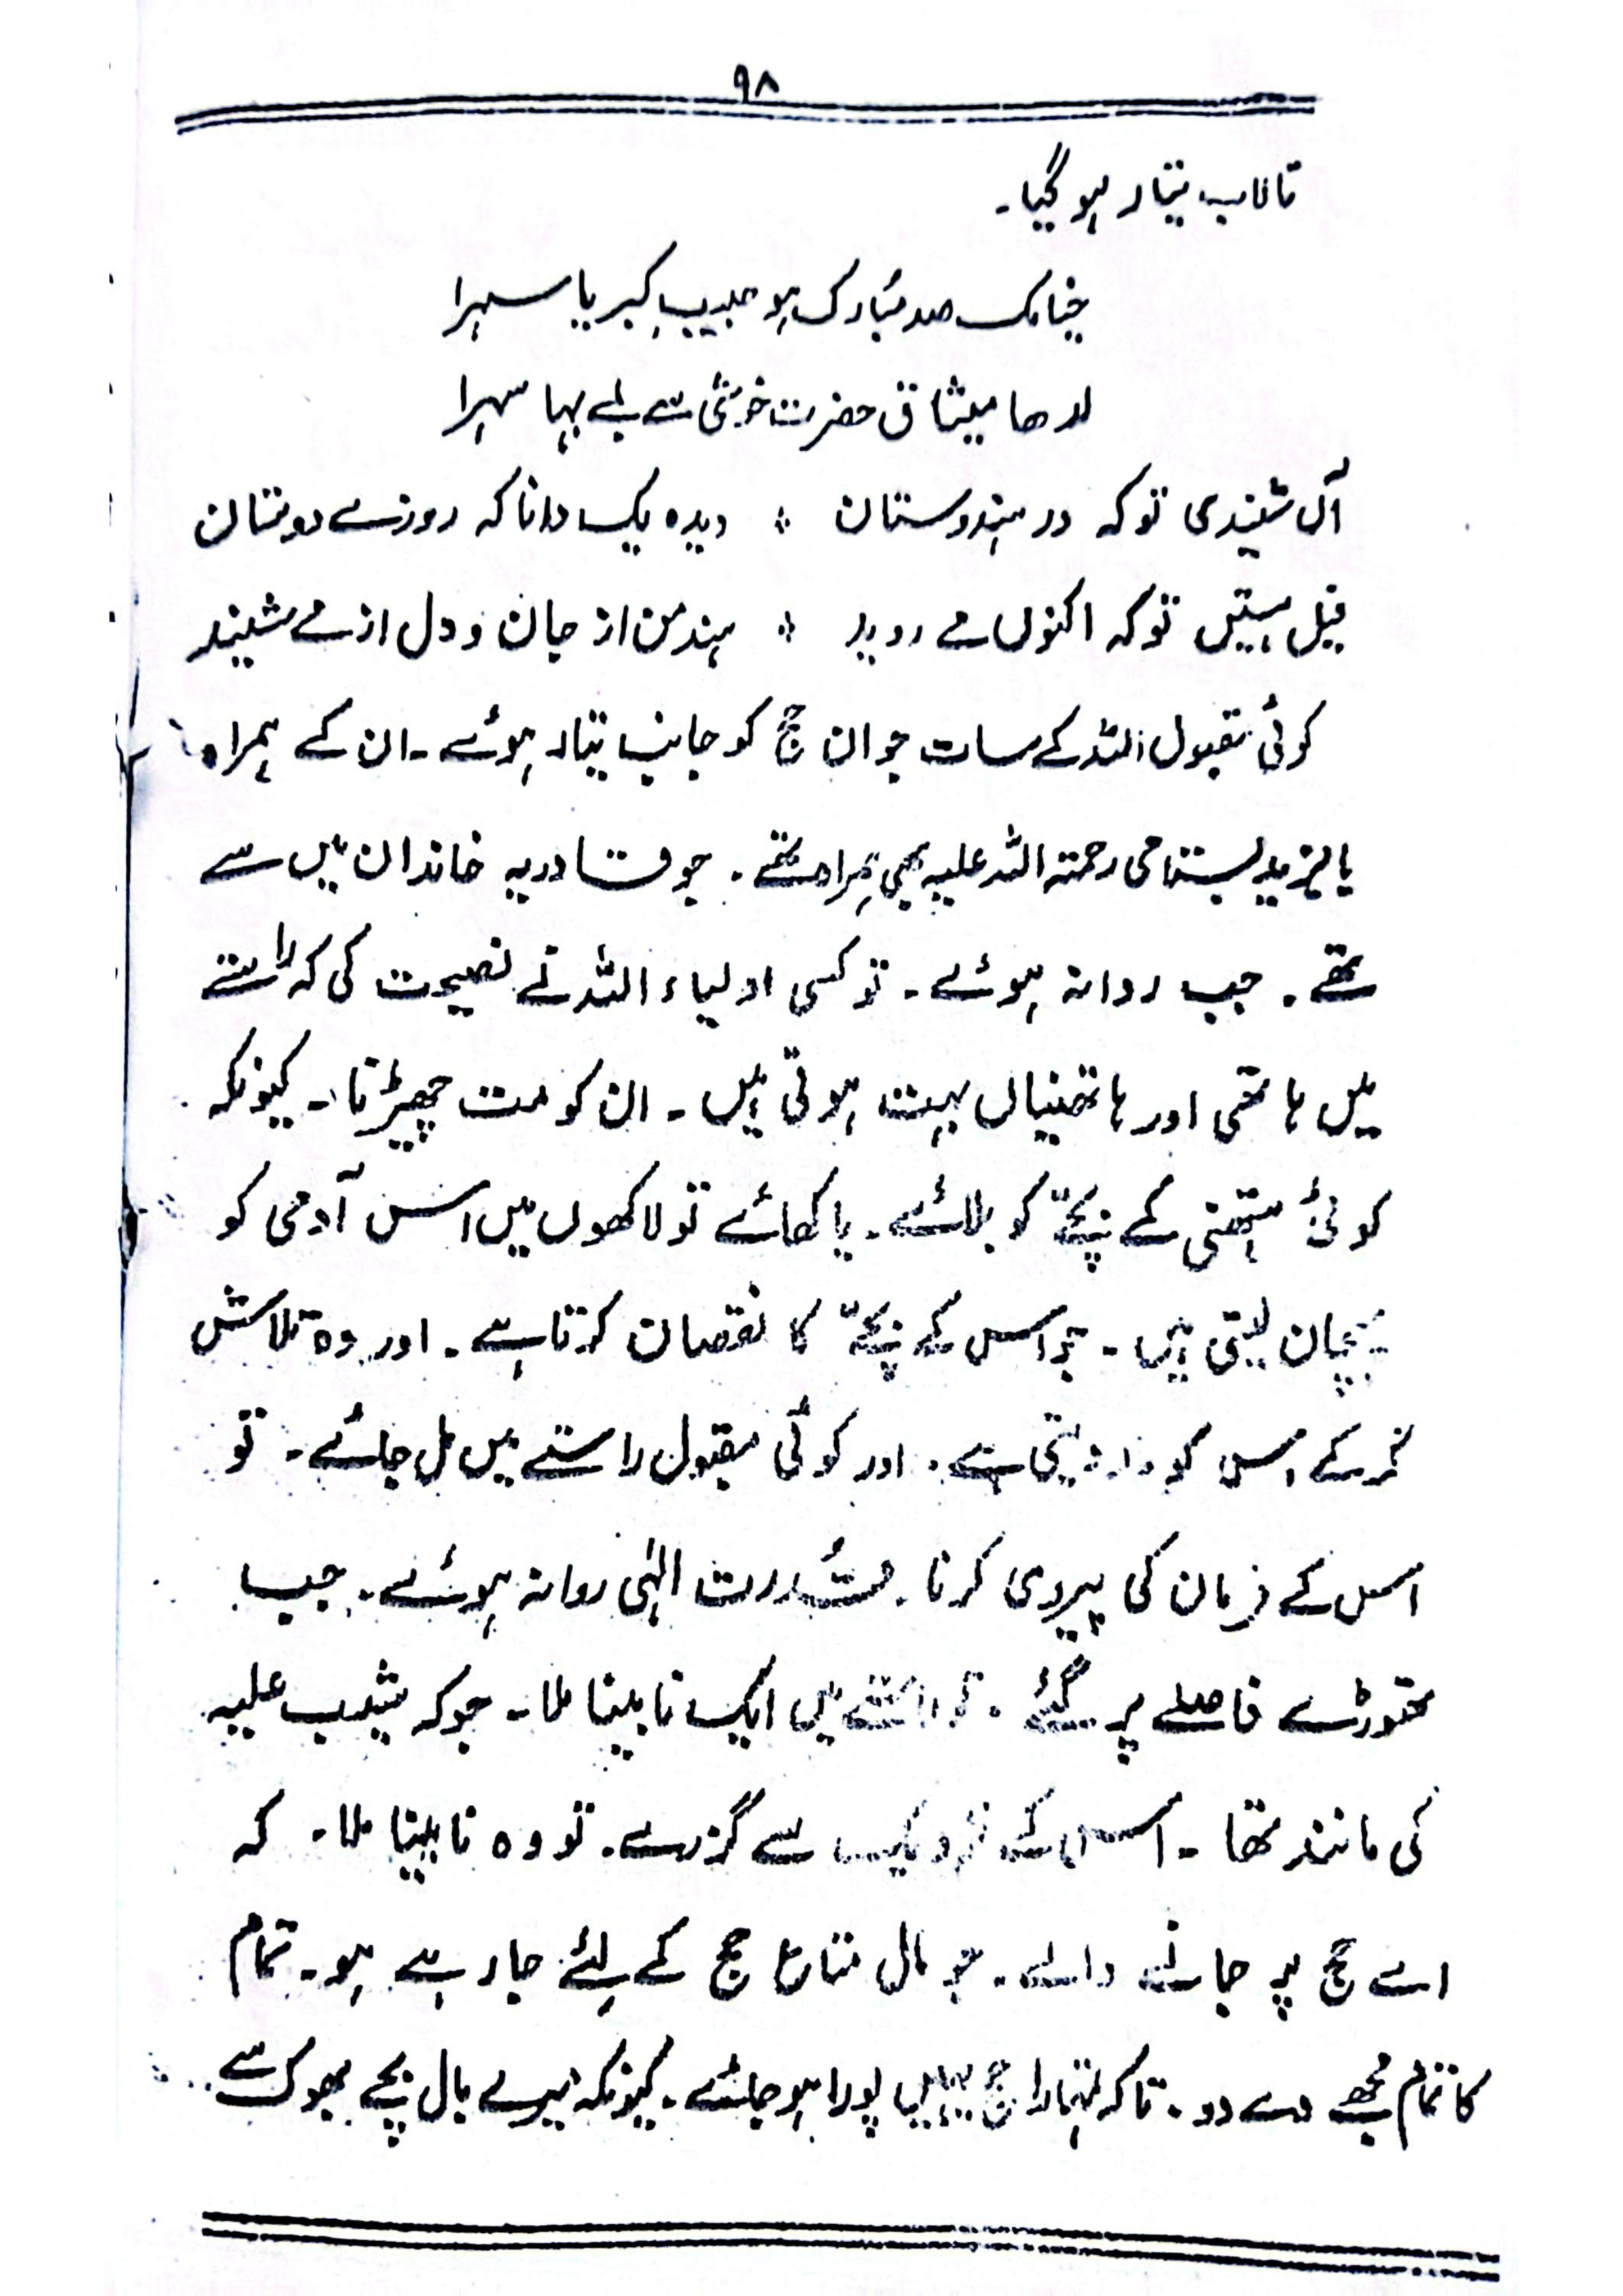 ۹۸
تالاب تیار ہو گیا۔
صد مبارک ہو حبیبِ کبریا سہرا
میثاق حضرت خوشی سے بے بہا سہرا
آں شنیدی تو کہ در ہندوستان ؞ دیدہ یک دانا کہ روزے دوستان
فیل ہستیں تو کہ اکنوں مے روید ؞ پند من از جان و دل از مے شنید
کوئی مقبول اللہ کے سات جوان حج کو جانب تیار ہوئے۔ ان کے ہمراہ
بایزید بستامی رحمتہ اللہ علیہ بھی ہمراہ تھے۔ جو قادریہ خاندان میں سے
تھے۔ جب روانہ ہوئے۔ تو کسی اولیاء اللہ نے نصیحت کی کہ راستے
میں ہاتھی اور ہاتھنیاں بہت ہوتی ہیں۔ ان کو مت چھیڑنا۔ کیونکہ
کوئی ہتھنی کے بچّے کو بلائے۔ یا کھائے تو لاکھوں میں اس آدمی کو
پہچان لیتی ہیں۔ جو اس کے بچّے کا نقصان کرتا ہے۔ اور وہ تلاش
کر کے اس کو مار دیتی ہے۔ اور کوئی مقبول راستے میں مل جائے۔ تو
اس کے فرمان کی پیروی کرنا۔ قُدرت الہٰی روانہ ہوئے۔ جب
تھوڑے فاصلے پر گئے۔ تو راستے میں ایک نابینا ملا۔ جو کہ شعیب علیہ
کی مانند تھا۔ اس کے نزدیک سے گزرے۔ تو وہ نابینا ملا۔ کہ
اے حج پر جانے والے۔ جو مال متاع حج کے لئے جا رہے ہو۔ تمام
کا تمام مجھے دے دو۔ تاکہ تمہارا حج یہیں پورا ہو جائے۔ کیونکہ میرے بال بچے بھوک سے